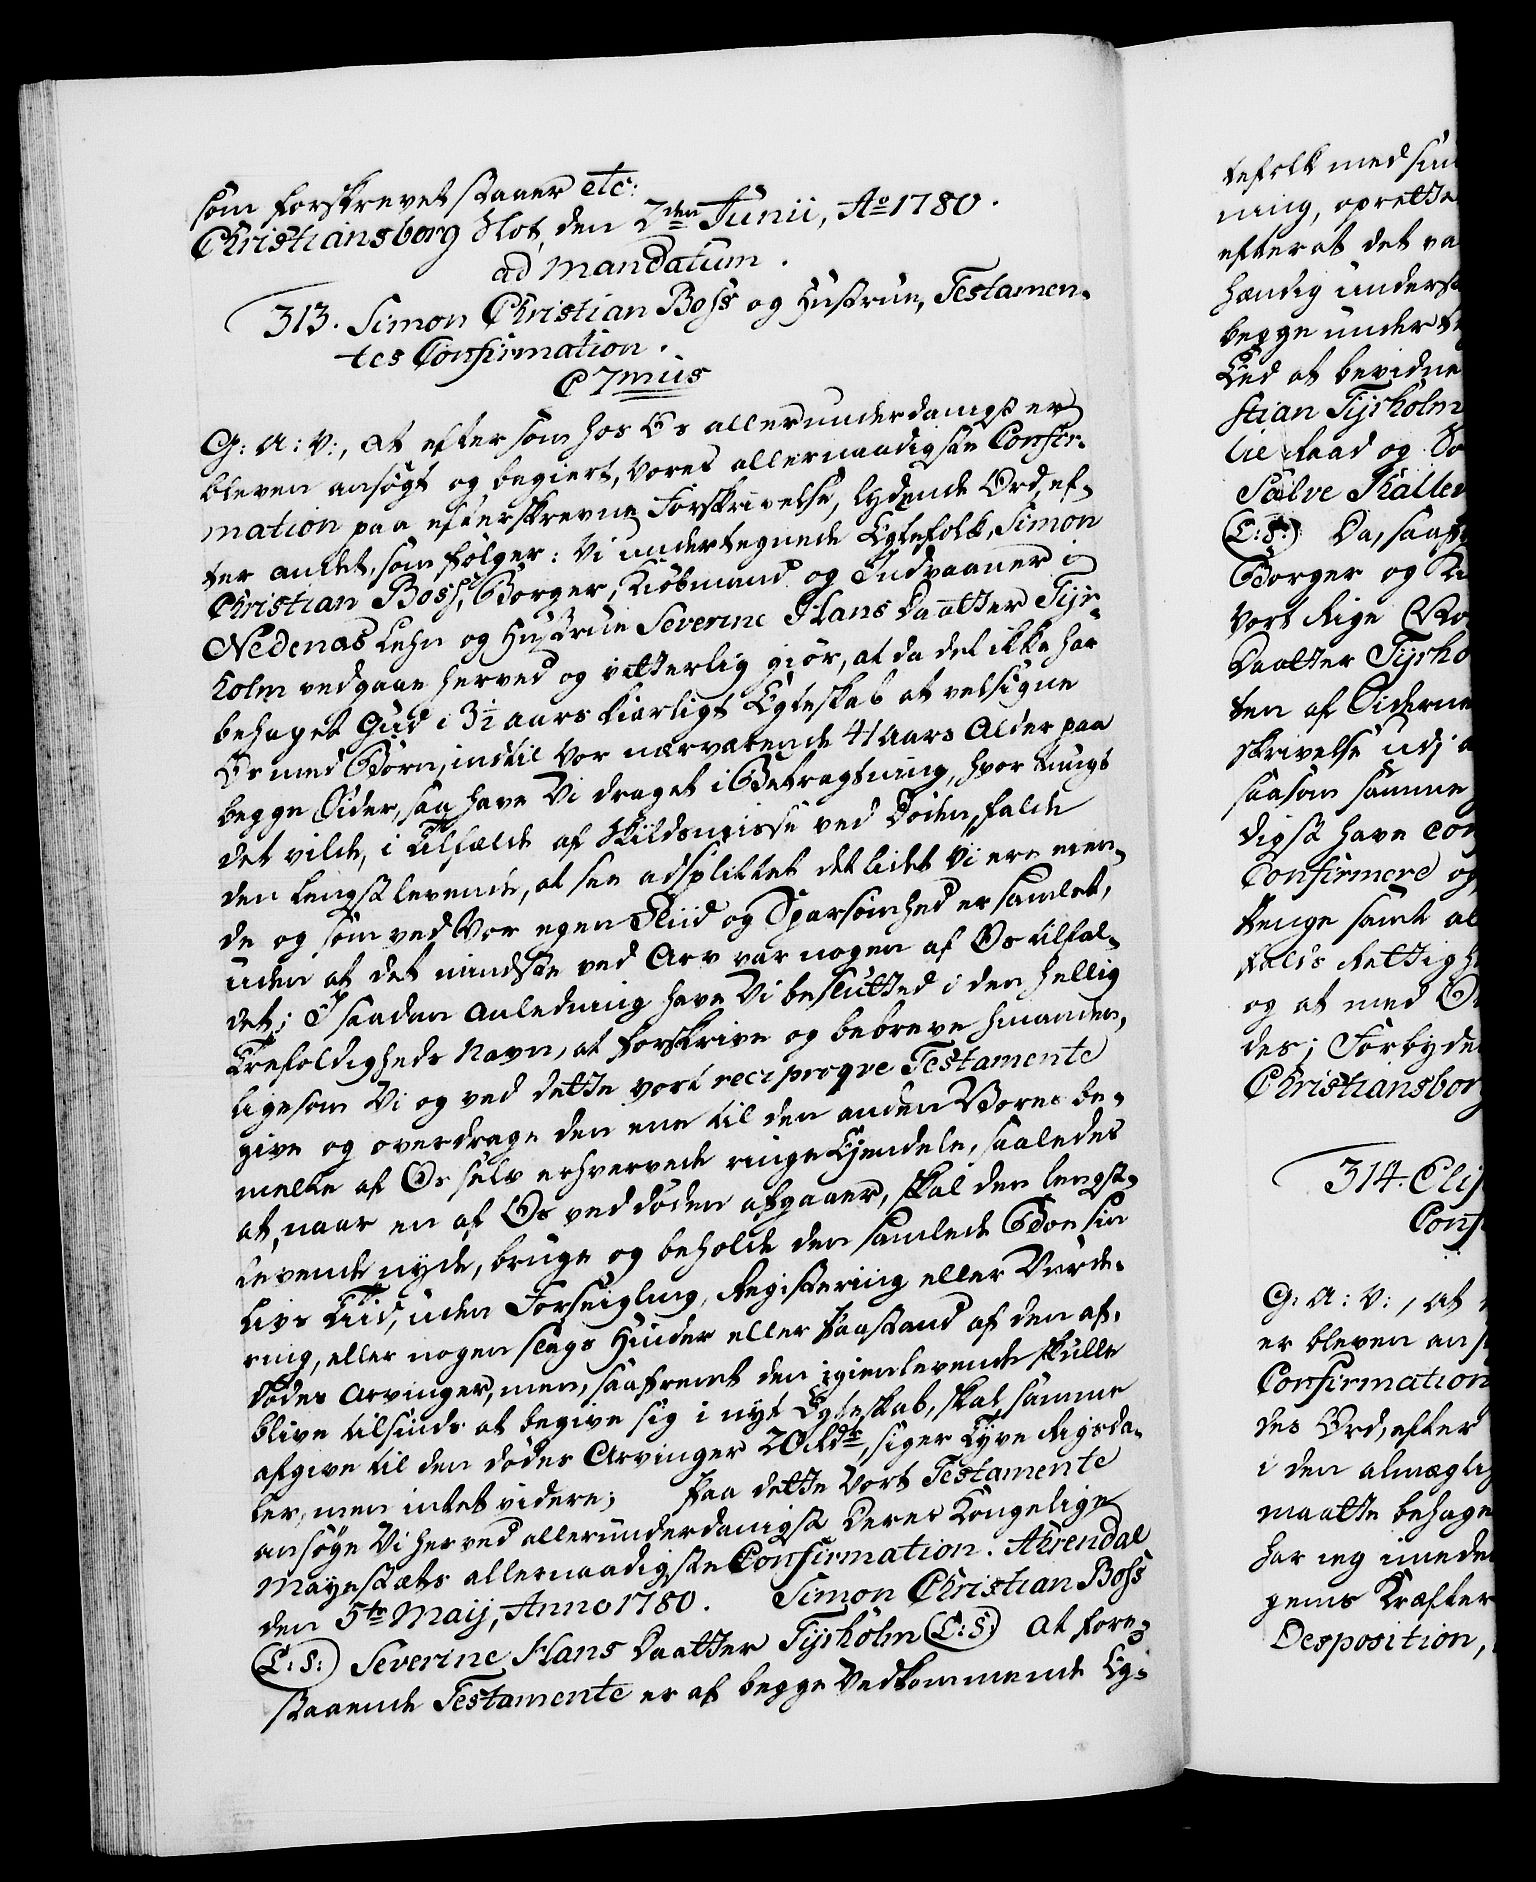 som forskrevet staaer etc:
Christiansborg Slot, den 2den Junii, Ao 1780.
ad mandatum.
313. Simon Christian Boss og Hustrue, Testamen-
tes Confirmation.
C7mus
G: A: V:, at eftersom hos Os allerunderdanigst er
bleven ansøgt og begiert, Vores allernaadigste Confir-
mation paa efterskrevne Forskrivelse, lydende Ord, ef-
ter andet, som følger: Vi undertegnede Egtefolk, Simon
Christian Boss, Borger, Kiøbmand og Indvaaner i
Nedenæs Lehn og Hustrue Severine Hans Daatter Tyr-
holm vedgaae herved og vitterlig giør, at da det ikke har
behaget Gud i 3½ aars kierligt Egteskab at velsigne
Os med Børn, indtil vor nærværende 41 Aars Alder paa
begge Sider, saa have Vi draget i Betragtning, hvor tungt
det vilde, i Tilfælde af Skilsmisse ved Døden, falde
den længstlevende, at see adsplittet det lidet Vi ere eien-
de og som ved Vor egen Fliid og Sparsomhed er samlet,
uden at det mindste ved Arv var nogen af Os tilfal-
det; I saadan Anledning have Vi besluttet i den hellig
Trefoldigheds Navn, at forskrive og bebreve hinanden,
ligesom Vi og ved dette vort reciproqve Testamente
give og overdrage den ene til den anden Vores be-
melte af Os selv erhvervede ringe Eyendele, saaledes
at, naar en af Os ved døden afgaaer, skal den længst-
levende nyde, bruge og beholde den samlede Boe sin
Livs Tiid, uden Forseigling, Registering eller Vurde-
ring, eller nogen slags Hinder eller Paastand af den af-
dødes Arvinger, men, saafremt den igienlevende skulle
blive tilsinds at begive sig i nyt Egteskab, skal samme
afgive til den dødes Arvinger 20 Rdr, siger Tyve Rigsda-
ler, men intet videre; Paa dette Vort Testamente
ansøge Vi herved allerunderdanigst Deres Kongelige
Mayestæts allernaadigste Confirmation. Ahrendal
den 5te Maij, Anno 1780. Simon Christian Boss
(L:S:) Severine Hans Daatter Tyrholm (L:S:) At fore-
staaende Testamente er af begge Vedkommende Eg-
tefolk med
ning, oprette
efterat det
hændig
begge under
at bevidne
stian Tyrholm
lie Raad og
Salve Kalle
(L:S:) Da, saa
Borger og
Vort Rige
Daatter Tyrho
ten af Siderne
skrivelse udj
saasom samme
digst have con
Confirmere og
samt al
Rettigh
og at med
des; Forbyde
Christiansborg
314. Elis
Conf
G: A: V:, at
er bleven an
Confirmation
des Ord, efter
i den almægtig
maatte behage
har ieg
gens Kræfter
Desposition,